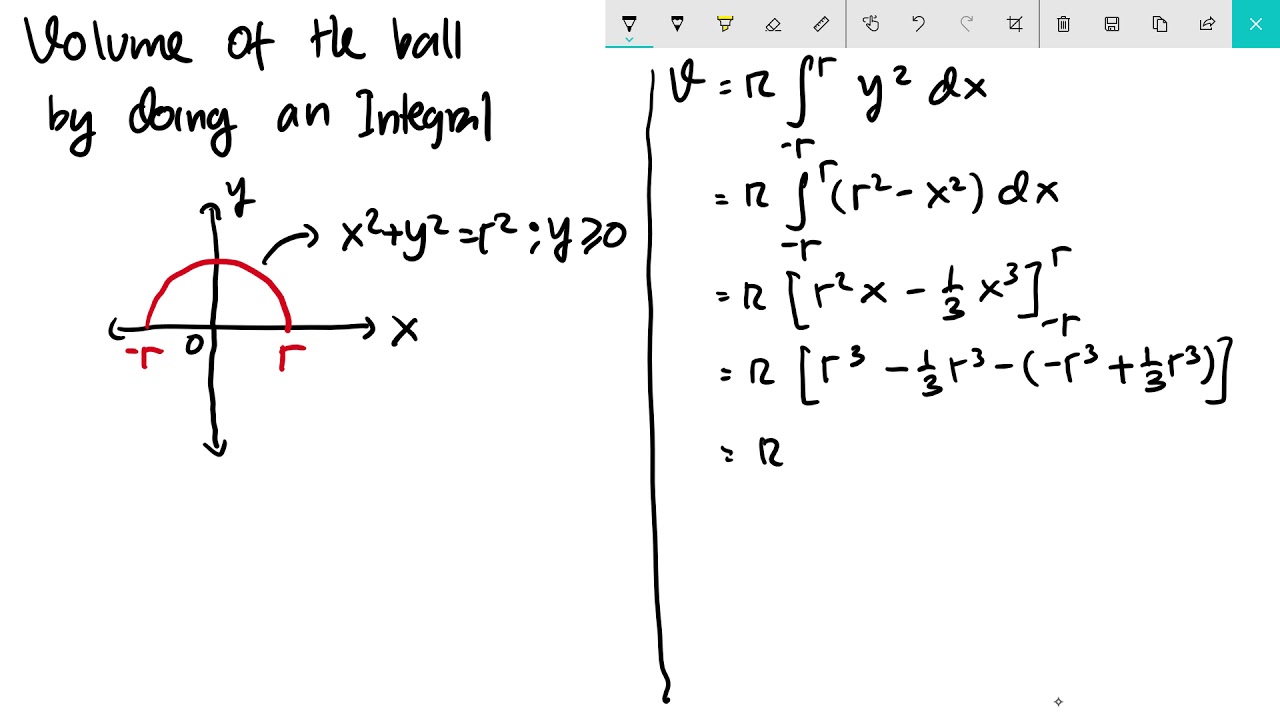 Volume of the ball
by doing an Integral
y
x²+y²=r² ; y⩾0
x
-r 0 r
V = π ∫_{-r}^{r} y² dx
= π ∫_{-r}^{r} (r² - x²) dx
= π [r²x - 1/3 x³]_{-r}^{r}
= π [r³ - 1/3 r³ - (-r³ + 1/3 r³)]
= π